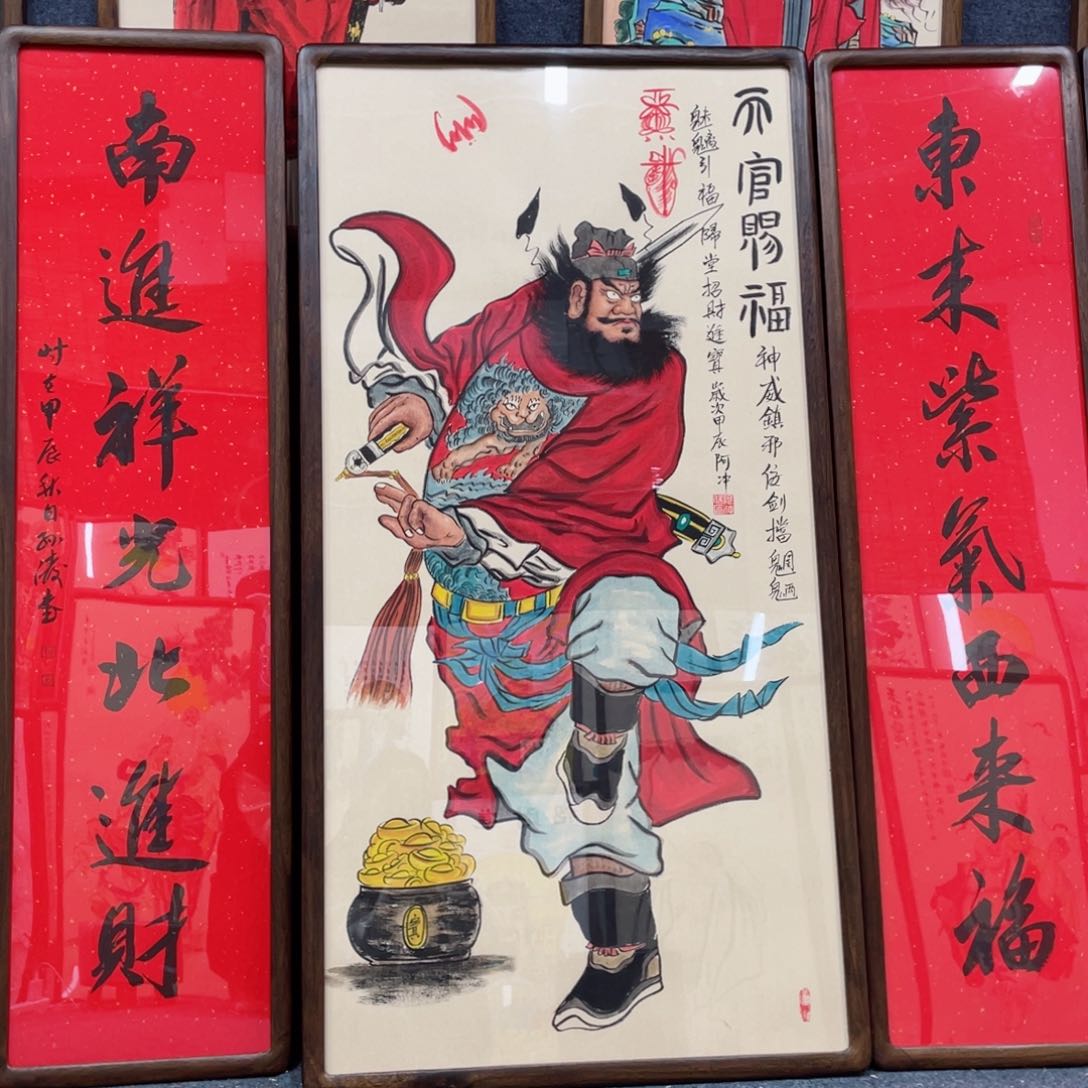 東来紫氣西来福
天官賜福
神威鎮邪仗劍擋魍魎
魅魑引福歸堂招財進寶 歲次甲辰阿冲
南進祥光北進財
时在甲辰秋日孙